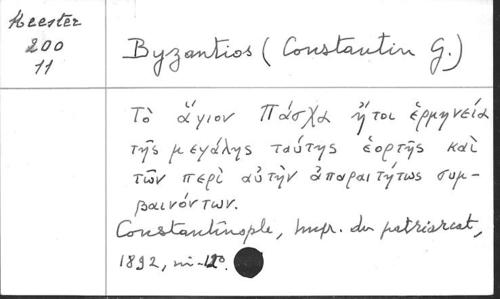 Meester
200
11
Byzantios (Constantin G.)
Τὸ ἅγιον Πάσχα ἤτοι ἑρμηνεία
τῆς μεγάλης ταύτης ἑορτῆς καὶ
τῶν περὶ αὐτὴν ἀπαραιτήτως συμ-
βαινόντων.
Constantinople, Impr. du patriarcat,
1892, in-12º.